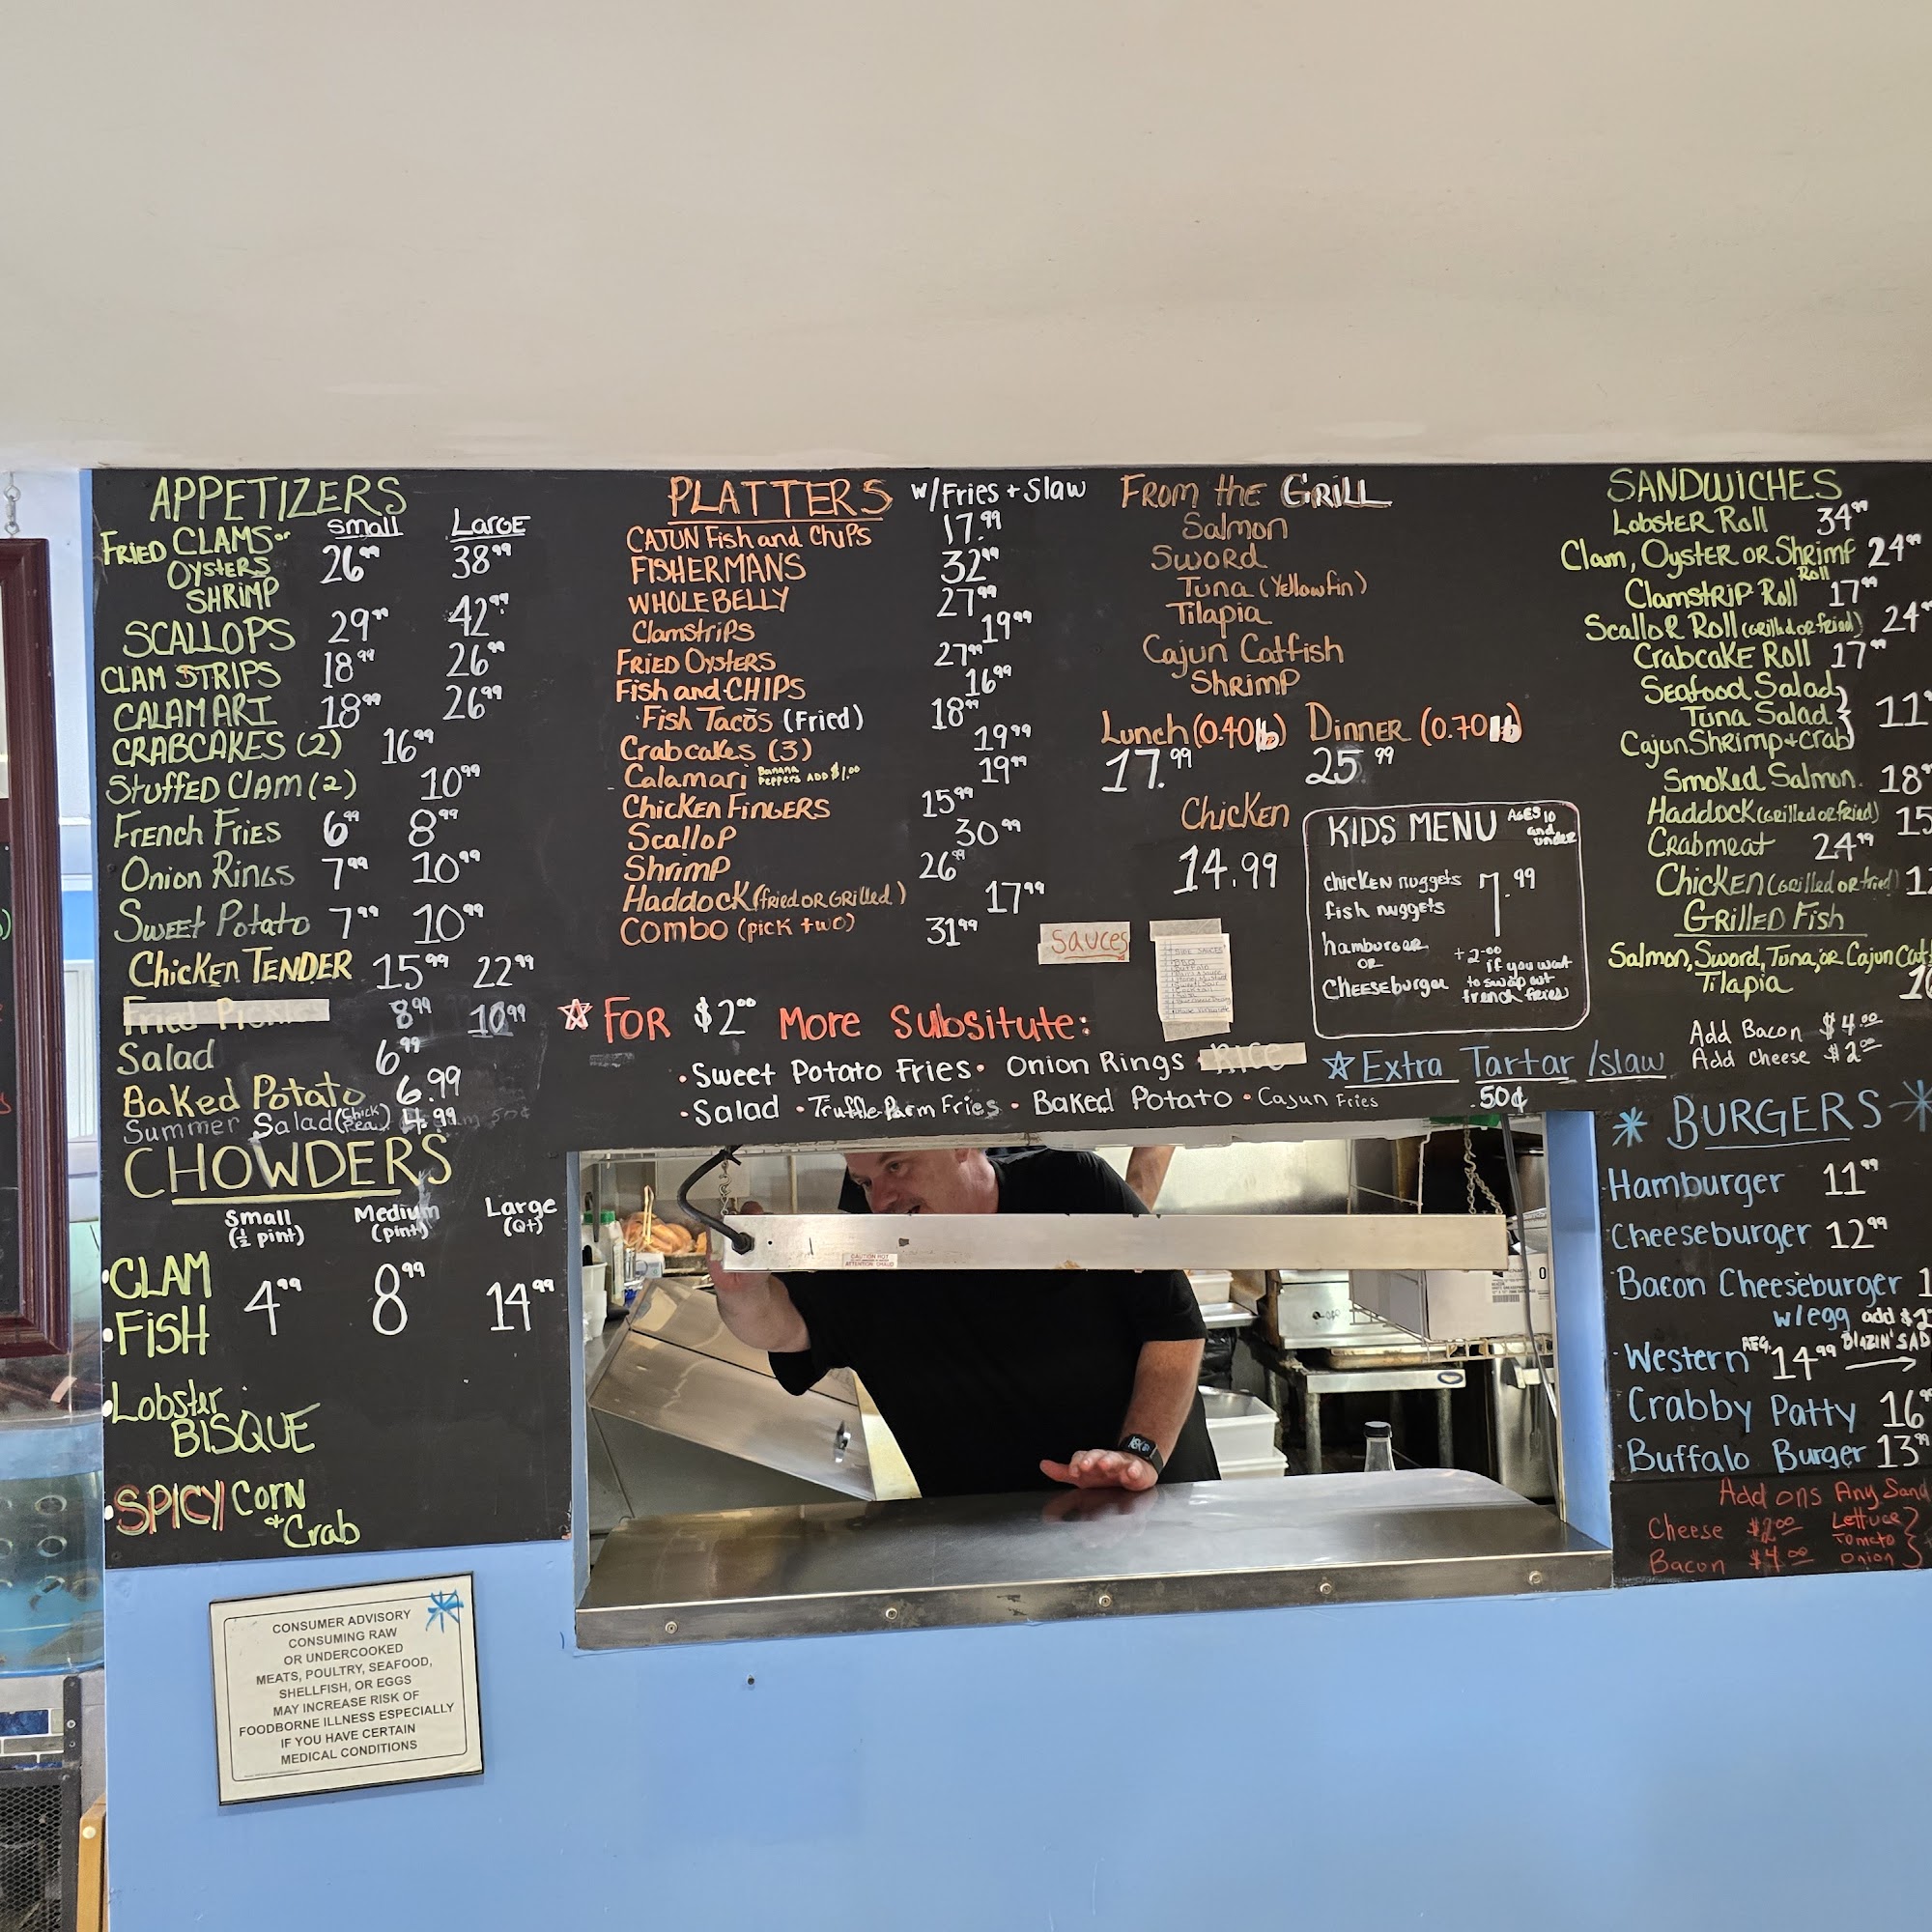 APPETIZERS
Small Large
FRIED CLAMS or 26.99 38.99
OYSTERS
SHRIMP
SCALLOPS 29.99 42.99
CLAM STRIPS 18.99 26.99
CALAMARI 18.99 26.99
CRABCAKES (2) 16.99
STUFFED CLAM (2) 10.99
French Fries 6.99 8.99
Onion Rings 7.99 10.99
Sweet Potato 7.99 10.99
Chicken TENDER 15.99 22.99
8.99 10.99
Salad 6.99
Baked Potato 6.99
Summer Salad (Chick Pea) 4.99
CHOWDERS
Small (½ pint) Medium (pint) Large (Qt)
•CLAM
•FISH 4.99 8.99 14.99
•Lobster BISQUE
•SPICY Corn & Crab
PLATTERS w/Fries + Slaw
CAJUN Fish and Chips 17.99
FISHERMANS 32.99
WHOLE BELLY 27.99
Clamstrips 19.99
FRIED Oysters 27.99
Fish and CHIPS 16.99
Fish Tacos (Fried) 18.99
Crabcakes (3) 19.99
Calamari Banana Peppers ADD $1.00 19.99
Chicken FINGERS 15.99
Scallop 30.99
Shrimp 26.99
Haddock (fried OR GRilled) 17.99
Combo (pick two) 31.99
From the GRILL
Salmon
Sword
Tuna (Yellowfin)
Tilapia
Cajun Catfish
Shrimp
Lunch (0.40lb) DINNER (0.70lb)
17.99 25.99
Chicken
14.99
KIDS MENU AGES 10 and under
chicken nuggets 7.99
fish nuggets
hamburger
OR
Cheeseburger
+2.00 if you want to swap out french fries
Sauces
☆ FOR $2.00 More Subsitute:
•Sweet Potato Fries• Onion Rings •RICE
•Salad •Truffle Parm Fries • Baked Potato •Cajun Fries
☆Extra Tartar/slaw
.50¢
SANDWICHES
Lobster Roll 34.99
Clam, Oyster OR Shrimp Roll 24.99
Clamstrip Roll 17.99
Scallop Roll (Grilled or fried) 24
Crabcake Roll 17.99
Seafood Salad
Tuna Salad } 11
Cajun Shrimp + Crab
Smoked Salmon. 18
Haddock (Grilled or fried) 15
Crabmeat 24.99
Chicken (Grilled or fried)
GRILLED FISH
Salmon, Sword, Tuna, or Cajun Cat
Tilapia
Add Bacon $4.00
Add Cheese $2.00
BURGERS
Hamburger 11.99
Cheeseburger 12.99
Bacon Cheeseburger
w/egg add $2
Western REG. 14.99 BLAZIN' SAD
Crabby Patty 16
Buffalo Burger 13.99
Add ons Any Sand
Cheese $2.00 Lettuce
Tomato
Bacon $4.00 Onion
CONSUMER ADVISORY
CONSUMING RAW
OR UNDERCOOKED
MEATS, POULTRY, SEAFOOD,
SHELLFISH, OR EGGS
MAY INCREASE RISK OF
FOODBORNE ILLNESS ESPECIALLY
IF YOU HAVE CERTAIN
MEDICAL CONDITIONS